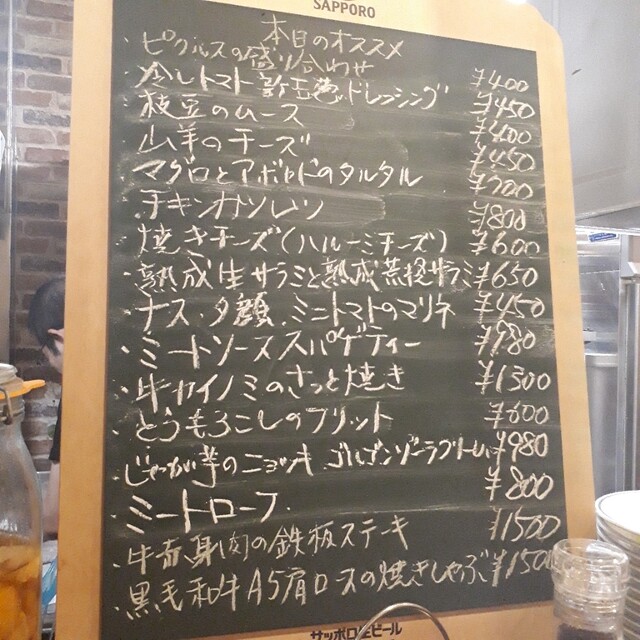 SAPPORO
本日のオススメ
・ピクルスの盛り合わせ ¥400
・冷しトマト 新玉葱ドレッシング ¥450
・枝豆のムース ¥400
・山羊のチーズ ¥450
・マグロとアボカドのタルタル ¥700
・チキンカツレツ ¥800
・焼きチーズ(ハルーミチーズ) ¥600
・熟成生サラミと熟成燻製サラミ ¥650
・ナス、夕顔、ミニトマトのマリネ ¥450
・ミートソーススパゲティー ¥980
・牛カイノミのさっと焼き ¥1300
・とうもろこしのフリット ¥600
・じゃがい芋のニョッキ ゴルゴンゾーラソース ¥980
・ミートローフ ¥800
・牛赤身肉の鉄板ステーキ ¥1500
・黒毛和牛A5肩ロースの焼きしゃぶ ¥1500
サッポロ生ビール